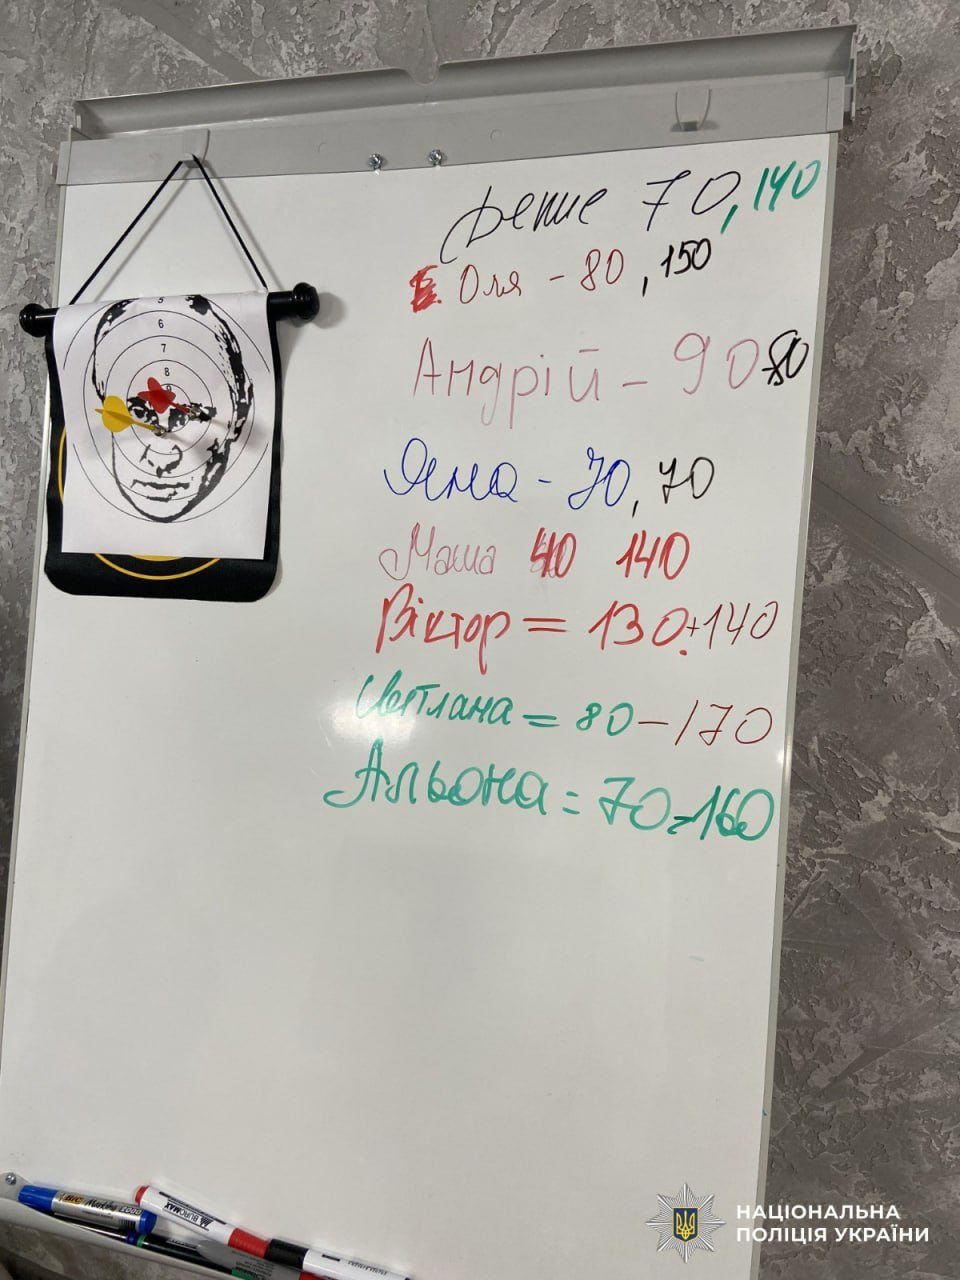 70, 140
Оля - 80, 150
Андрій - 90 80
Яна - 70, 70
Маша 40 140
Віктор = 130.+140
Світлана = 80 - 170
Альона = 70 - 160
5
6
7
8
9
BIC
BUROMAX
НАЦІОНАЛЬНА
ПОЛІЦІЯ УКРАЇНИ